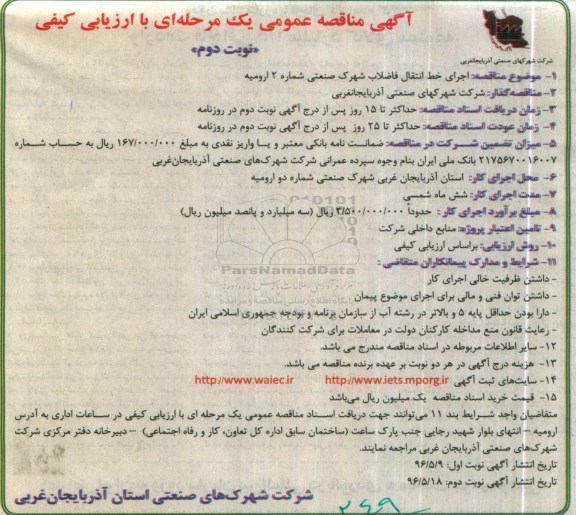 آگهی مناقصه عمومی یک مرحله‌ای با ارزیابی کیفی
«نوبت دوم»
شرکت شهرکهای صنعتی آذربایجانغربی
۱- موضوع مناقصه: اجرای خط انتقال فاضلاب شهرک صنعتی شماره ۲ ارومیه
۲- مناقصه‌گذار: شرکت شهرکهای صنعتی آذربایجانغربی
۳- زمان دریافت اسناد مناقصه: حداکثر تا ۱۵ روز پس از درج آگهی نوبت دوم در روزنامه
۴- زمان عودت اسناد مناقصه: حداکثر تا ۲۵ روز پس از درج آگهی نوبت دوم در روزنامه
۵- میزان تضمین شرکت در مناقصه: ضمانت نامه بانکی معتبر و یا واریز نقدی به مبلغ ۱۶۷/۰۰۰/۰۰۰ ریال به حساب شماره
۲۱۷۵۶۷۰۰۱۶۰۰۷ بانک ملی ایران بنام وجوه سپرده عمرانی شرکت شهرک‌های صنعتی آذربایجان‌غربی
۶- محل اجرای کار: استان آذربایجان غربی شهرک صنعتی شماره دو ارومیه
۷- مدت اجرای کار: شش ماه شمسی
۸- مبلغ برآورد اجرای کار: حدوداً ۳/۵۰۰/۰۰۰/۰۰۰ ریال (سه میلیارد و پانصد میلیون ریال)
۹- تامین اعتبار پروژه: منابع داخلی شرکت
۱۰- روش ارزیابی: براساس ارزیابی کیفی
۱۱- شرایط و مدارک پیمانکاران متقاضی:
- داشتن ظرفیت خالی اجرای کار
- داشتن توان فنی و مالی برای اجرای موضوع پیمان
- دارا بودن حداقل پایه ۵ و بالاتر در رشته آب از سازمان برنامه و بودجه جمهوری اسلامی ایران
- رعایت قانون منع مداخله کارکنان دولت در معاملات برای شرکت کنندگان
۱۲- سایر اطلاعات مربوطه در اسناد مناقصه مندرج می باشد.
۱۳- هزینه درج آگهی در هر دو نوبت بر عهده برنده مناقصه می باشد.
۱۴- سایت‌های ثبت آگهی http://www.iets.mporg.ir http://www.waiec.ir
۱۵- قیمت خرید اسناد مناقصه یک میلیون ریال می‌باشد
متقاضیان واجد شرایط بند ۱۱ می‌توانند جهت دریافت اسناد مناقصه عمومی یک مرحله ای با ارزیابی کیفی در ساعات اداری به آدرس
ارومیه - انتهای بلوار شهید رجایی جنب پارک ساعت (ساختمان سابق اداره کل تعاون، کار و رفاه اجتماعی) - دبیرخانه دفتر مرکزی شرکت
شهرک‌های صنعتی آذربایجان غربی مراجعه نمایند.
تاریخ انتشار آگهی نوبت اول: ۹۶/۵/۹
تاریخ انتشار آگهی نوبت دوم: ۹۶/۵/۱۸
شرکت شهرک‌های صنعتی استان آذربایجان‌غربی
ParsNamadData